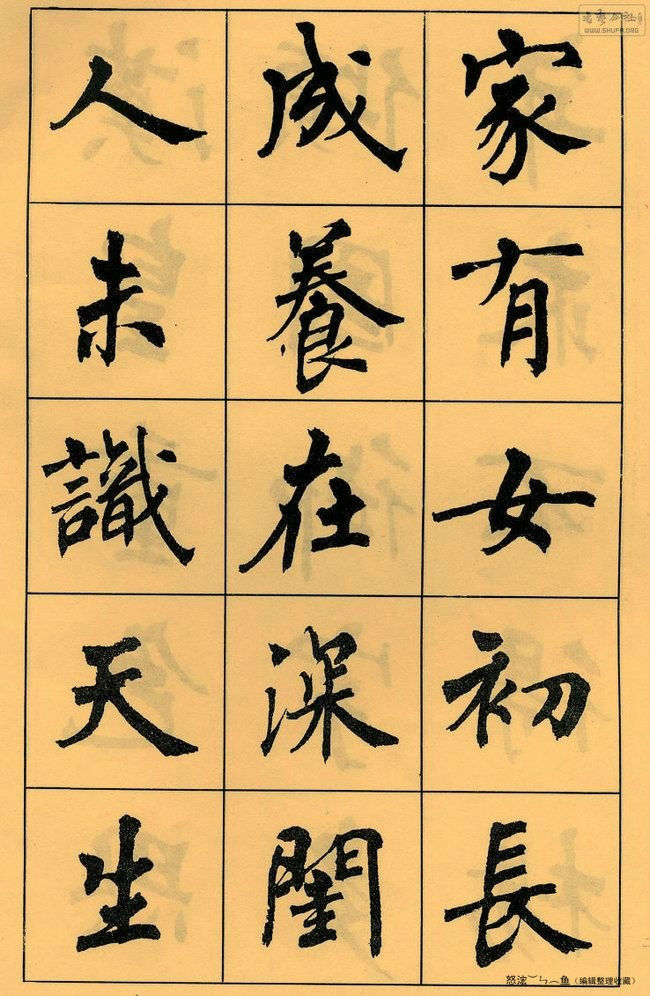 家有女初長
成養在深閨
人未識天生
WWW.SHUFA.ORG
(编辑整理收藏)